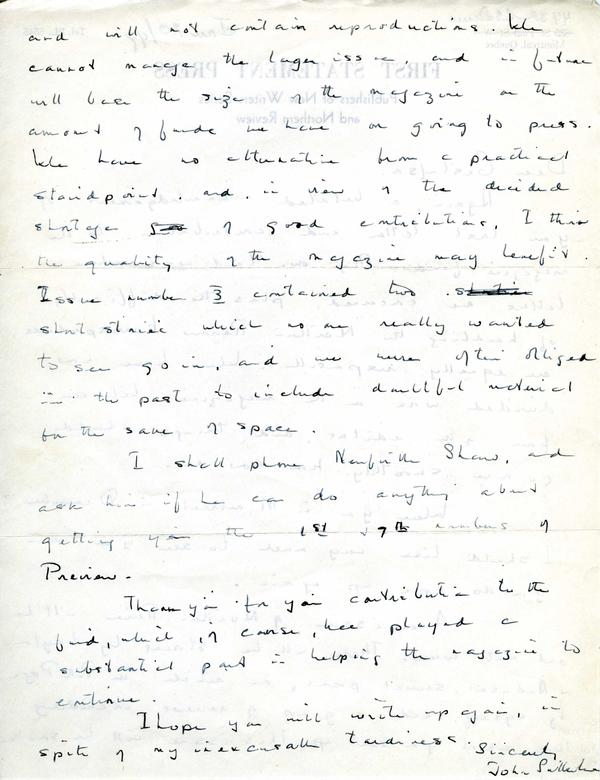 and will not contain reproductions. We
cannot manage the larger issue and in future
will base the size of the magazine on the
amount of funds we have on going to press.
We have no alternative from a practical
standpoint, and, in view of the decided
shortage of good contributions, I think
the quality of the magazine may benefit.
Issue number 3 contained two
short stories which no one really wanted
to see go in, and we were often obliged
in the past to include doubtful material
for the sake of space.
I shall phone Neufville Shaw, and
ask him if he can do anything about
getting you the 1st & 7th numbers of
Preview.
Thank you for your contribution to the
fund, which, of course, has played a
substantial part in helping the magazine to
continue.
I hope you will write us again, in
spite of my inexcusable tardiness.
Sincerely
John Sutherland
FIRST STATEMENT PRESS
Publishers of New Writers
and Northern Review